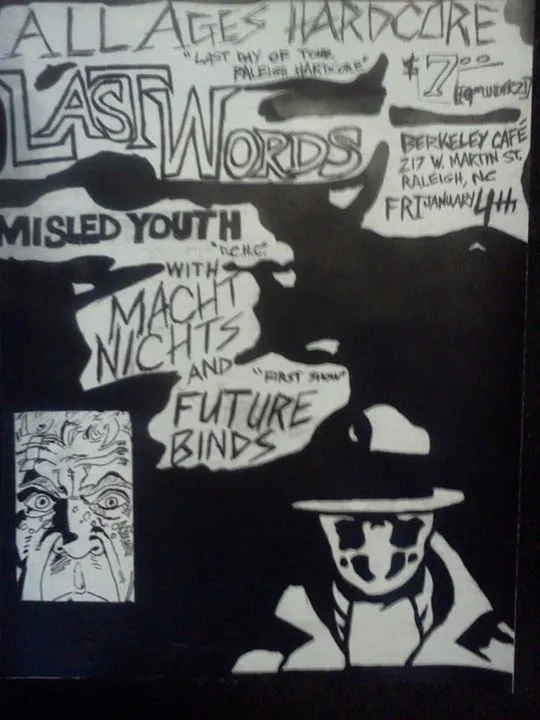 ALL AGES HARDCORE
"LAST DAY OF TOUR
RALEIGH HARDCORE"
$7.00
UNDER 21
LAST
WORDS
BERKELEY CAFÉ
217 W. MARTIN ST.
RALEIGH, NC
FRI JANUARY 4TH
MISLED YOUTH
"D.C.H.C."
WITH
MACHT
NICHTS
AND
"FIRST SHOW"
FUTURE
BINDS